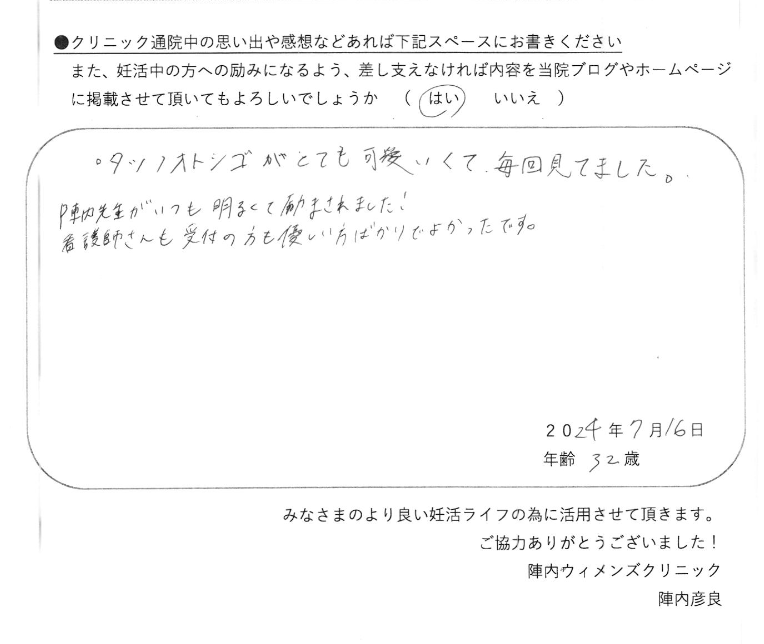 ●クリニック通院中の思い出や感想などあれば下記スペースにお書きください
また、妊活中の方への励みになるよう、差し支えなければ内容を当院ブログやホームページ
に掲載させて頂いてもよろしいでしょうか （ はい　いいえ ）
・タツノオトシゴがとても可愛いくて、毎回見てました。
陣内先生がいつも明るくて励まされました！
看護師さんも受付の方も優しい方ばかりでよかったです。
2024年7月16日
年齢 32歳
みなさまのより良い妊活ライフの為に活用させて頂きます。
ご協力ありがとうございました！
陣内ウィメンズクリニック
陣内彦良